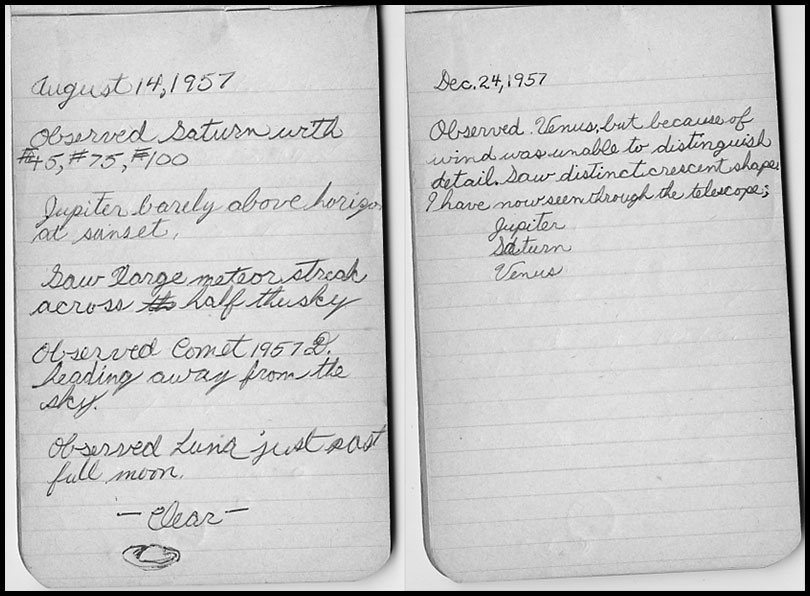 August 14, 1957
Observed Saturn with
#45, #75, #100
Jupiter barely above horizon
at sunset.
Saw large meteor streak
across half the sky
Observed Comet 1957 D.
heading away from the
sky.
Observed Luna just past
full moon.
— Clear —
Dec. 24, 1957
Observed Venus, but because of
wind was unable to distinguish
detail. Saw distinct crescent shape.
I have now seen through the telescope;
Jupiter
Saturn
Venus